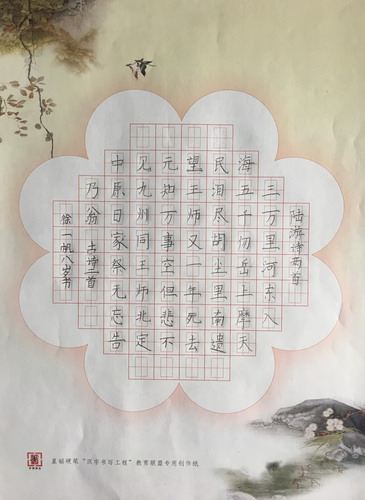 陆游诗两首
三万里河东入
海五千仞岳上摩天
民泪尽胡尘里南遗
望王师又一年死去
元知万事空但悲不
见九州同王师北定
中原日家祭无忘告
乃翁 古诗二首
徐一帆八岁书
硬笔“汉字书写工程”教育联盟专用创作纸